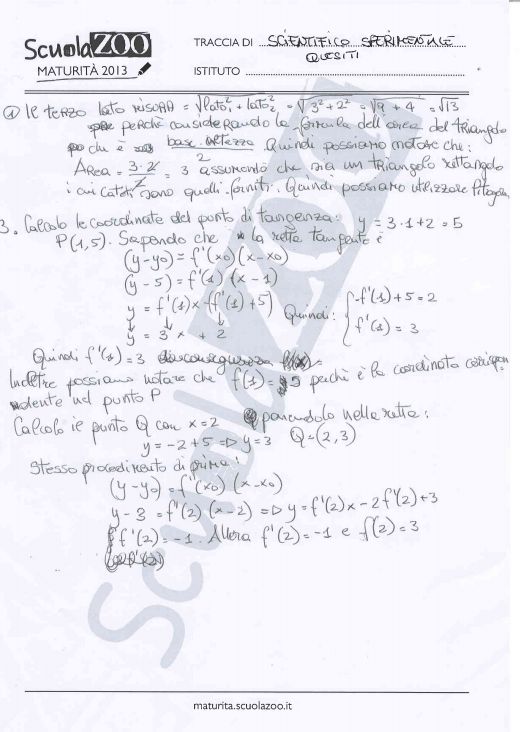 ScuolaZOO
MATURITÀ 2013
TRACCIA DI SCIENTIFICO SPERIMENTALE
QUESITI
ISTITUTO
① Il TERZO lato MISURA = √lato₁² + lato₂² = √3² + 2² = √9 + 4 = √13
perchè considerando la formula dell'area del triangolo
che è base · altezza / 2 Quindi possiamo notare che:
AREA = 3 · 2 / 2 = 3 assumendo che sia un triangolo rettangolo
i cui cateti sono quelli forniti. Quindi possiamo utilizzare Pitagora
3. Calcolo le coordinate del punto di tangenza: y = 3 · 1 + 2 = 5
P(1,5). Sapendo che la retta tangente è
(y - y0) = f'(x0) (x - x0)
(y - 5) = f'(1) (x - 1)
y = f'(1)x - f'(1) + 5)
Quindi: { -f'(1) + 5 = 2
f'(1) = 3
y = 3x + 2
Quindi f'(1) = 3
Inoltre possiamo notare che f(1) = 5 perchè è la coordinata corrispon
dente nel punto P
Calcolo il punto Q con x = 2 passandolo nella retta:
y = -2 + 5 => y = 3 Q = (2,3)
Stesso procedimento di prima:
(y - y0) = f'(x0) (x - x0)
y - 3 = f'(2) (x - 2) => y = f'(2)x - 2f'(2) + 3
f'(2) = -1. Allora f'(2) = -1 e f(2) = 3
ScuolaZoo
maturita.scuolazoo.it